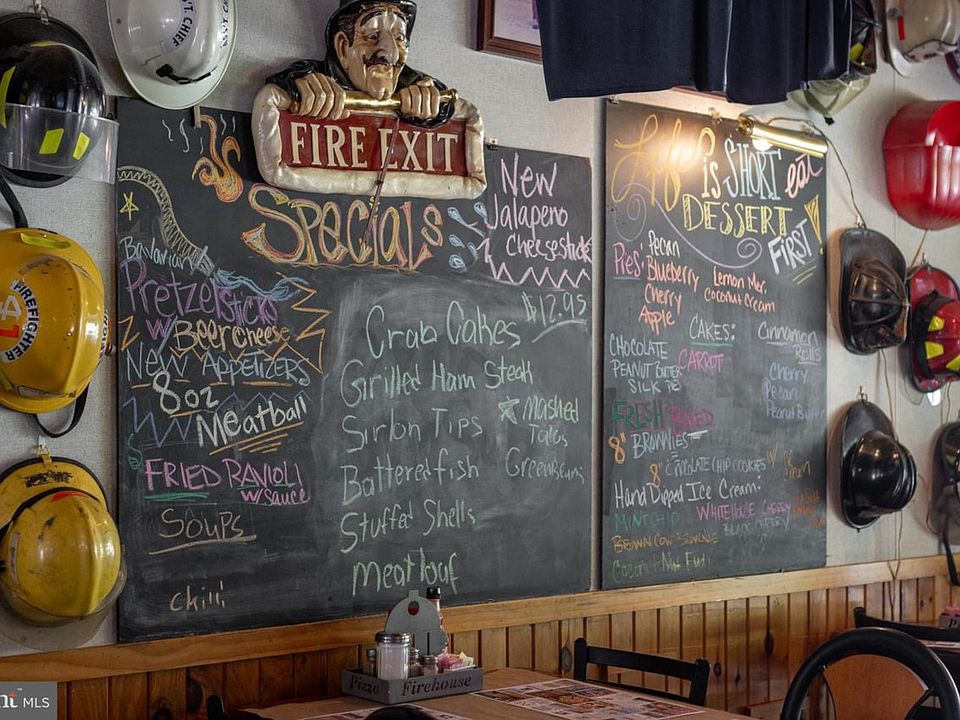 SS'T. CHIEF
FIRE EXIT
Specials
New
Jalapeno
Cheesestick
Bavarian
Pretzelsticks
w/ Beer Cheese
New Appetizers
8oz
Meatball
FRIED RAVIOLI
w/ SAUCE
Soups
chili
$12.95
Crab Cakes
Grilled Ham Steak
Sirlon Tips
Battered fish
Stuffed Shells
meatloaf
Mashed
Tatos
Greenbeans
Life is SHORT eat
DESSERT
FIRST
Pies:
Pecan
Blueberry
Cherry
Apple
Lemon Mer.
Coconut Cream
CHOCOLATE
PEANUT BUTTER
SILK PIE
CAKES:
CARROT
Cinnamon
Rolls
Cherry
Pecan
Peanut Butter
FRESH BAKED
8" BROWNIES
8" CHOCOLATE CHIP COOKIES w/ ice cream
Hand Dipped Ice Cream:
MINT CHIP
WHITEHOUSE CHERRY
BLACK CHERRY
BROWN COW BROWNIE
Coconut Nut Fudge
FIREFIGHTER
41
Pizza Firehouse
nt MLS